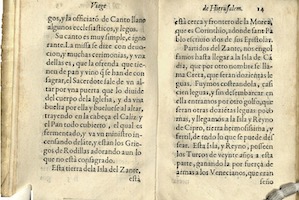 Viage
gos, y la oficiarõ de Canto llano
algunos ecclesiasticos, y legos.
Su canto es muy simple, e igno
rante. La missa se dize con deuo
cion, y muchas ceremonias, y vna
dellas es, que la ofrenda que tie
nen de pan y vino q̃ se ha de con
sagrar, el Sacerdote sale de vn al
tar por vna puerta que lo diuide
del cuerpo de la Iglesia, y da vna
buelta por ella y bueluese al altar,
trayendo en la cabeça el Caliz y
el Pan todo cubierto, el qual es
fermentado, y va vn ministro in
censando delãte, y estan los Grie
gos de Rodillas adorando aun lo
que no està consagrado.
Esta tierra dela Isla del Zante,
está
de Hierusalem. 14
està cerca y frontero de la Morea,
que es Corinthio, donde san Pa
blo escriuio donde sus Epistolas.
Partidos del Zante, nos engol
famos hasta llegar a la Isla de Cã
dia, que por otro nombre se lla-
ma Creta, que seran doziẽtas le
guas. Fuymos costeandola, casi
siempre con bonança, y sin desembarcar en
ella entramos por otro golfo, que
seran otras dozientas leguas poco
mas, y llegamos a la Isla y Reyno
de Cipro, tierra hermosissima, y
fertil, de todo lo que se puede des
sear. Esta Isla, y Reyno, posseen
los Turcos de veynte años a esta
parte, ganandola por fuerça de
armas a los Venecianos, que eran
seño